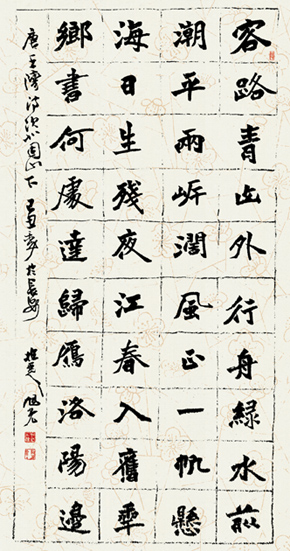 客路青山外行舟綠水前
潮平兩岸闊風正一帆懸
海日生殘夜江春入舊年
鄉書何處達歸雁洛陽邊
唐王灣詩次北固山下 於長安